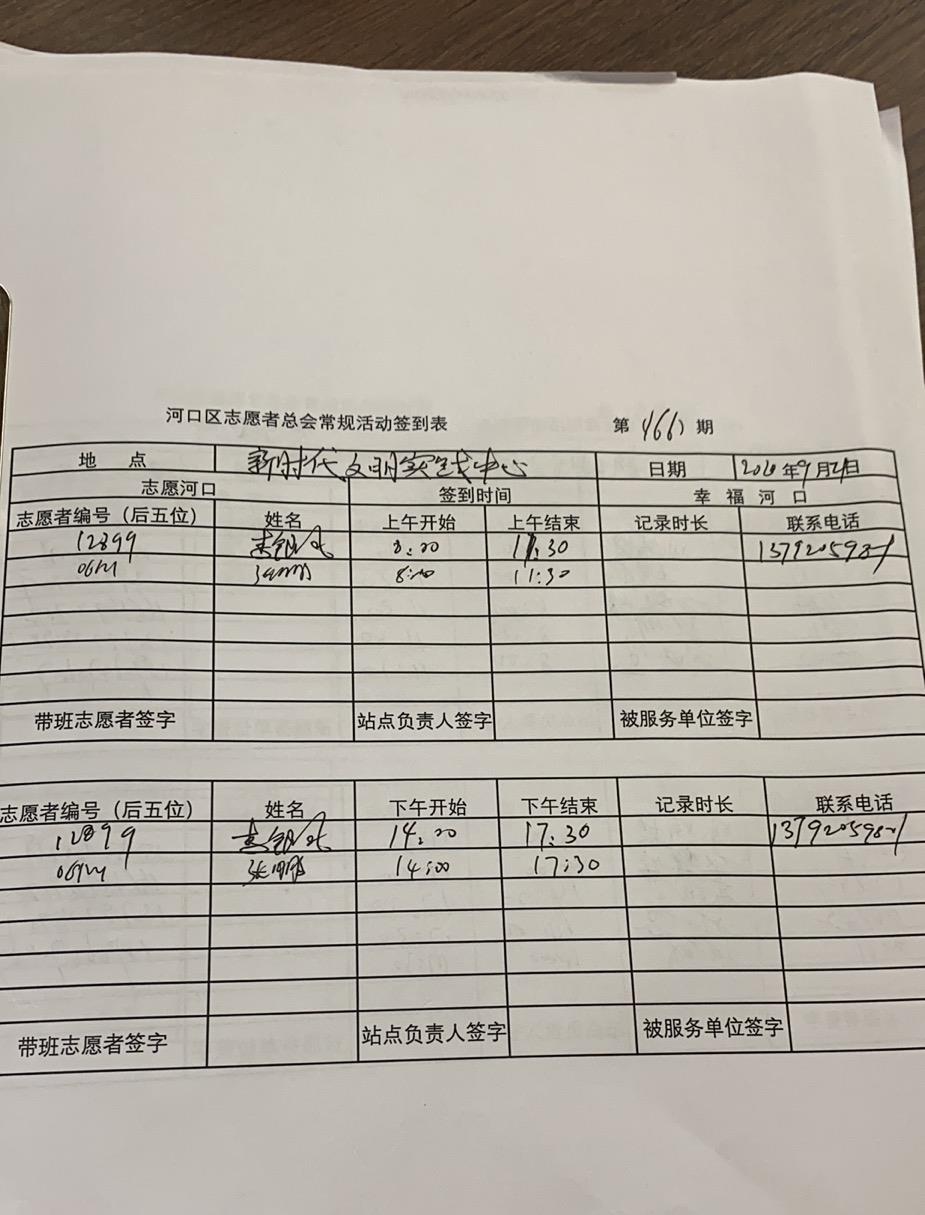 河口区志愿者总会常规活动签到表 第 466 期
地 点 新时代文明实践中心 日期 2020年9月21日
志愿河口 签到时间 幸 福 河 口
志愿者编号（后五位） 姓名 上午开始 上午结束 记录时长 联系电话
12899 8:00 11:30
8:00 11:30
带班志愿者签字 站点负责人签字 被服务单位签字
志愿者编号（后五位） 姓名 下午开始 下午结束 记录时长 联系电话
12899 14:00 17:30
张鹏 14:00 17:30
带班志愿者签字 站点负责人签字 被服务单位签字